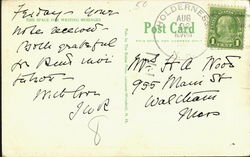 50
THE SPACE FOR WRITING MESSAGES
Post Card
HOLDERNESS
AUG
1
Friday - Your
note received
Both grateful
for kind
With love
Mrs H A Wood
935 Main St
Waltham
Mass